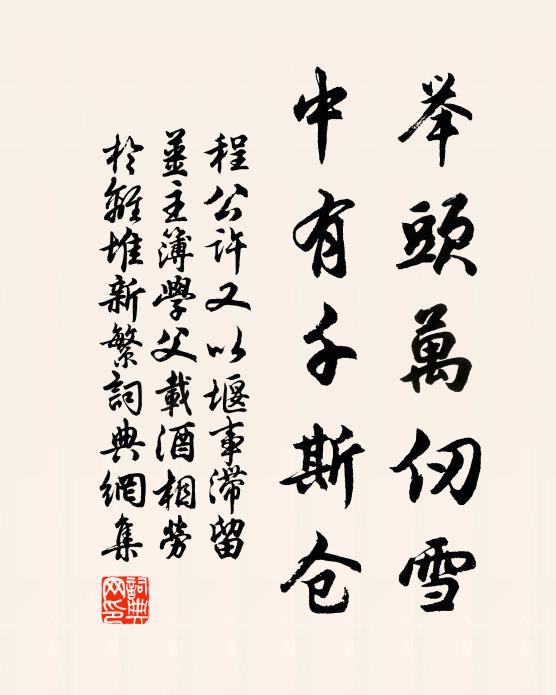 举頭萬仞雪
中有千斯仓
程公許又以堰事滞留
薑主簿學父載酒相勞
於離堆新繁詞典網集
詞典网印